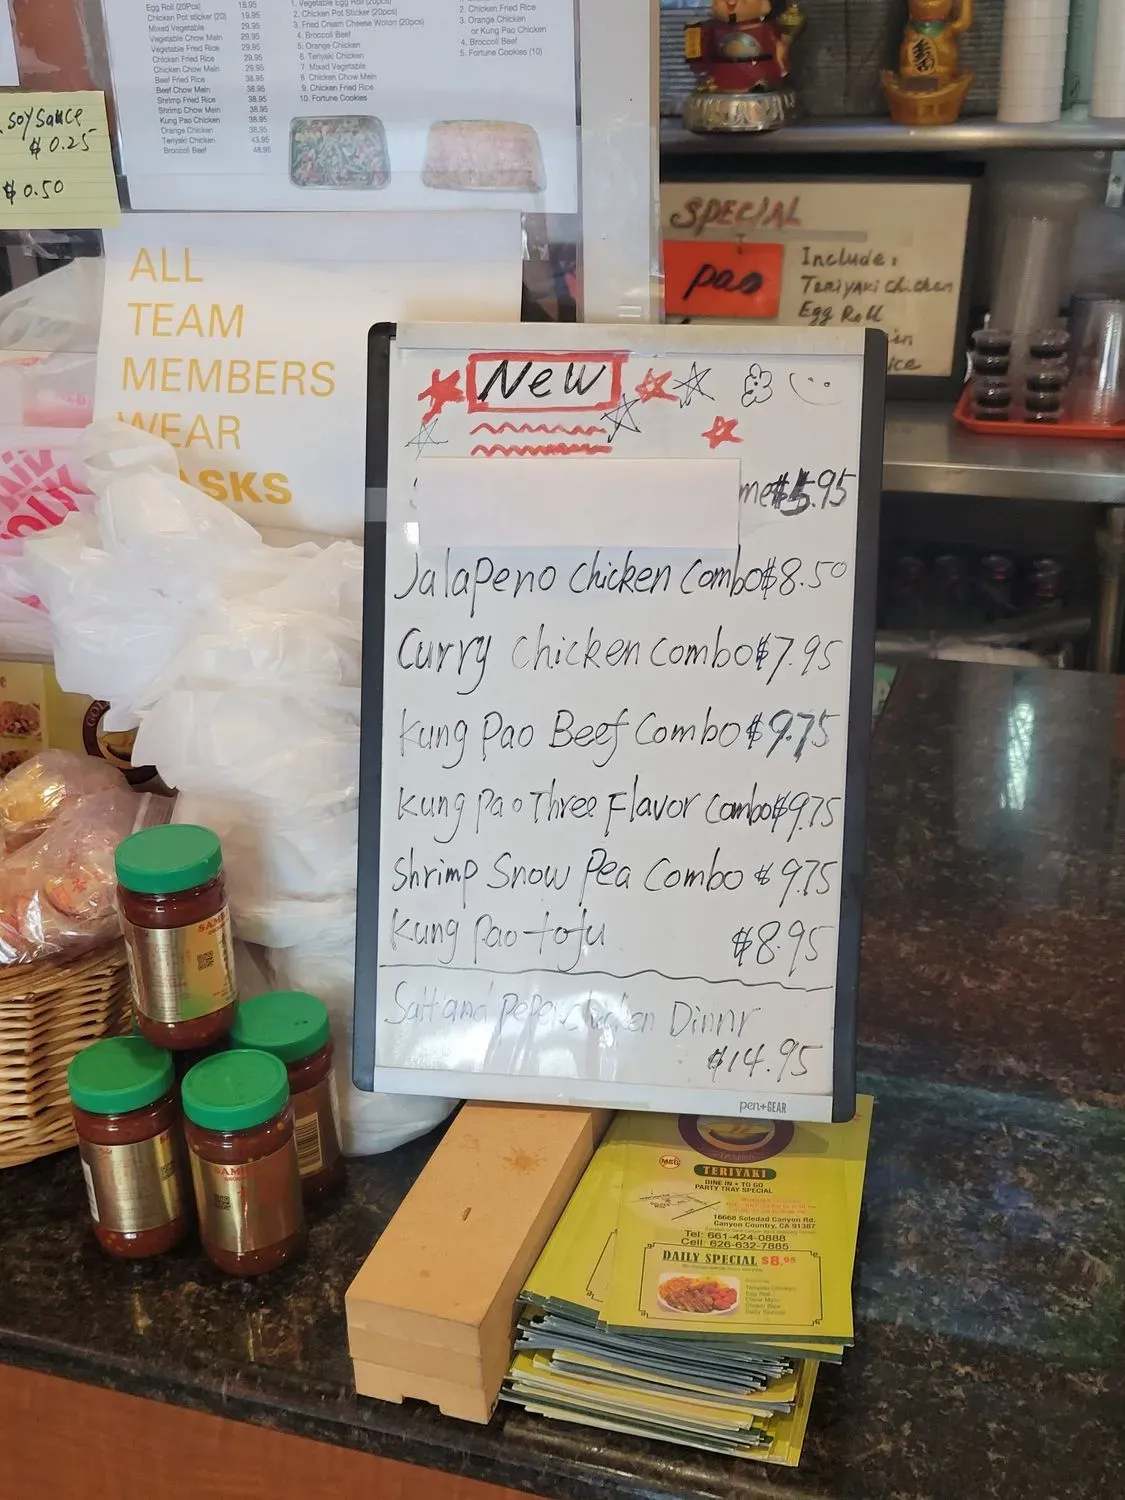 Egg Roll (20Pcs) 18.95
Chicken Pot sticker (20) 19.95
Mixed Vegetable 29.95
Vegetable Chow Mein 29.95
Vegetable Fried Rice 29.95
Chicken Fried Rice 29.95
Chicken Chow Mein 29.95
Beef Fried Rice 38.95
Beef Chow Mein 38.95
Shrimp Fried Rice 38.95
Shrimp Chow Mein 38.95
Kung Pao Chicken 38.95
Orange Chicken 38.95
Teriyaki Chicken 43.95
Broccoli Beef 48.95
1. Vegetable Egg Roll (20pcs)
2. Chicken Pot Sticker (20pcs)
3. Fried Cream Cheese Woton (20pcs)
4. Broccoli Beef
5. Orange Chicken
6. Teriyaki Chicken
7. Mixed Vegetable
8. Chicken Chow Mein
9. Chicken Fried Rice
10. Fortune Cookies
2. Chicken Fried Rice
3. Orange Chicken
or Kung Pao Chicken
4. Broccoli Beef
5. Fortune Cookies (10)
soy sauce
$0.25
$0.50
ALL
TEAM
MEMBERS
WEAR
SPECIAL
Pao
Include:
Teriyaki Chicken
Egg Roll
New
.95
Jalapeno chicken Combo $8.50
Curry chicken combo $7.95
Kung Pao Beef Combo $9.75
Kung Pao Three Flavor Combo $9.75
Shrimp Snow Pea Combo $9.75
Kung Pao tofu $8.95
Salt and Peper Chicken Dinnr
$14.95
pen+GEAR
TERIYAKI
DINE IN • TO GO
PARTY TRAY SPECIAL
16668 Soledad Canyon Rd.
Canyon Country, CA 91387
Tel: 661-424-0888
Cell: 626-632-7885
DAILY SPECIAL $8.95
Teriyaki Chicken
Egg Roll
Chow Mein
Steam Rice
Daily Special